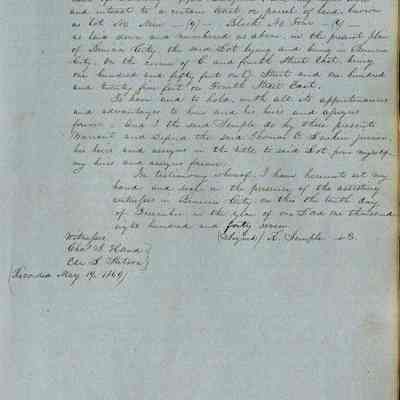 and interest to a certain Lot or parcel of land, known
as lot No Nine - (9) - Block No Four - (4) -
as laid down and numbered as above, in the present plan
of Benicia City, the said Lot lying and being in Benicia
City, on the corner of C and fourth Street East, being
one hundred and fifty feet on C Street and one hundred
and twenty five feet on Fourth Street East.
To have and to hold, with all its appurtenances
and advantages to him and his heirs and assigns
forever, and I the said Semple do by these presents
Warrant and defend the said Thomas O. Larkin junior,
his heirs and assigns in the title to said Lot, from myself
my heirs and assigns forever.
In testimony whereof, I have hereunto set my
hand and seal in the presence of the assisting
witnesses in Benicia City, on this the tenth day
of December in the year of our Lord one thousand
eight hundred and forty seven
Witnesses (Signed) R. Semple
Chas. S. Hand
Ed. S. Stetson
May 19, 1849)